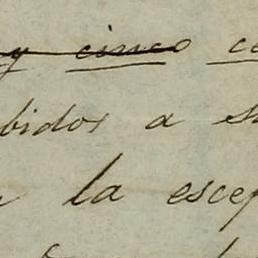 y cinco
bidos a s
la escep